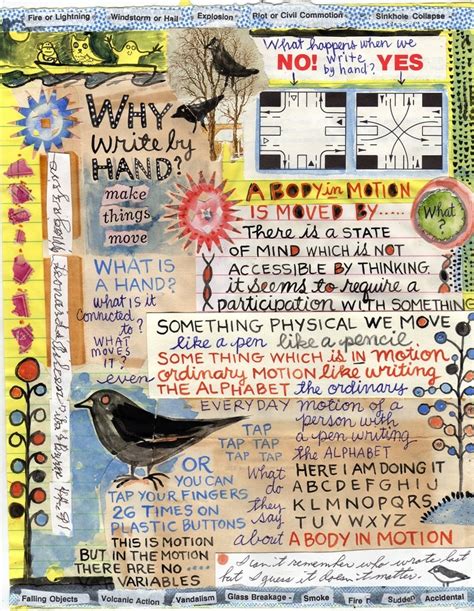 Fire or Lightning
Windstorm or Hail
Explosion
Riot or Civil Commotion
Sinkhole Collapse
What happens when we
write
by hand?
NO!
YES
WHY
write by
HAND?
make
things
move
A BODY in MOTION
IS MOVED BY.....
There is a STATE
OF MIND WHICH IS NOT
ACCESSIBLE BY THINKING.
it seems to require a
participation WITH SOMETHING
What?
WHAT IS
A HAND?
what is it
connected
to?
WHAT
MOVES
IT?
SOMETHING PHYSICAL WE MOVE
like a pen like a pencil
SOME THING WHICH IS IN MOTION
ORDINARY MOTION LIKE WRITING
THE ALPHABET the ordinary
even
EVERYDAY motion of a
person with
a pen writing
the ALPHABET
TAP
TAP TAP
TAP TAP
OR
YOU CAN
TAP YOUR FINGERS
26 TIMES ON
PLASTIC BUTTONS
What
do
they
say
about
HERE I AM DOING IT
ABCDEFGHIJ
KLMNOPQRS
TUVWXYZ
A BODY IN MOTION
THIS IS MOTION
BUT IN THE MOTION
THERE ARE NO
VARIABLES
I can't remember who wrote last
but I guess it doesn't matter.
Falling Objects
Volcanic Action
Vandalism
Glass Breakage
Smoke
Fire
Sudden
Accidental